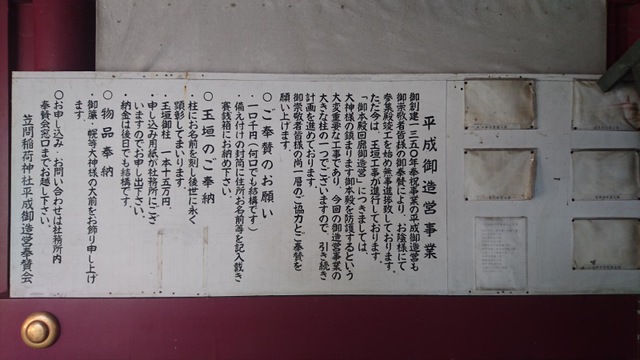 平成御造営事業
御創建一三五〇年奉祝事業の平成御造営も
御崇敬者皆様の御奉賛により、お陰様にて
参集殿竣工を始め無事進捗致しております。
ただ今は、玉垣工事が進行しております。
「御本殿回廊御造営」につきましては、
大神様の鎮まります御本殿を防護するという
大変重要な工事であり、今回の御造営事業の
大きな柱の一つでございますので、引き続き
計画を進めております。
御崇敬者皆様の尚一層のご協力とご奉賛を
願い上げます。
○ご奉賛のお願い
・一口千円(何口でも結構です)
・備え付けの封筒に住所お名前等を記入戴き
賽銭箱にお納め下さい。
○玉垣のご奉納
柱にお名前を刻し後世に永く
顕彰してまいります。
・玉垣御柱 一本十五万円、
申し込み用紙が社務所にござ
いますのでお申し出下さい。
・納金は後日でも結構です。
○物品奉納
・御簾・幌等大神様の大前をお飾り申し上げ
ます。
○お申し込み・お問い合わせは社務所内
奉賛会窓口までお越し下さい。
笠間稲荷神社平成御造営奉賛会